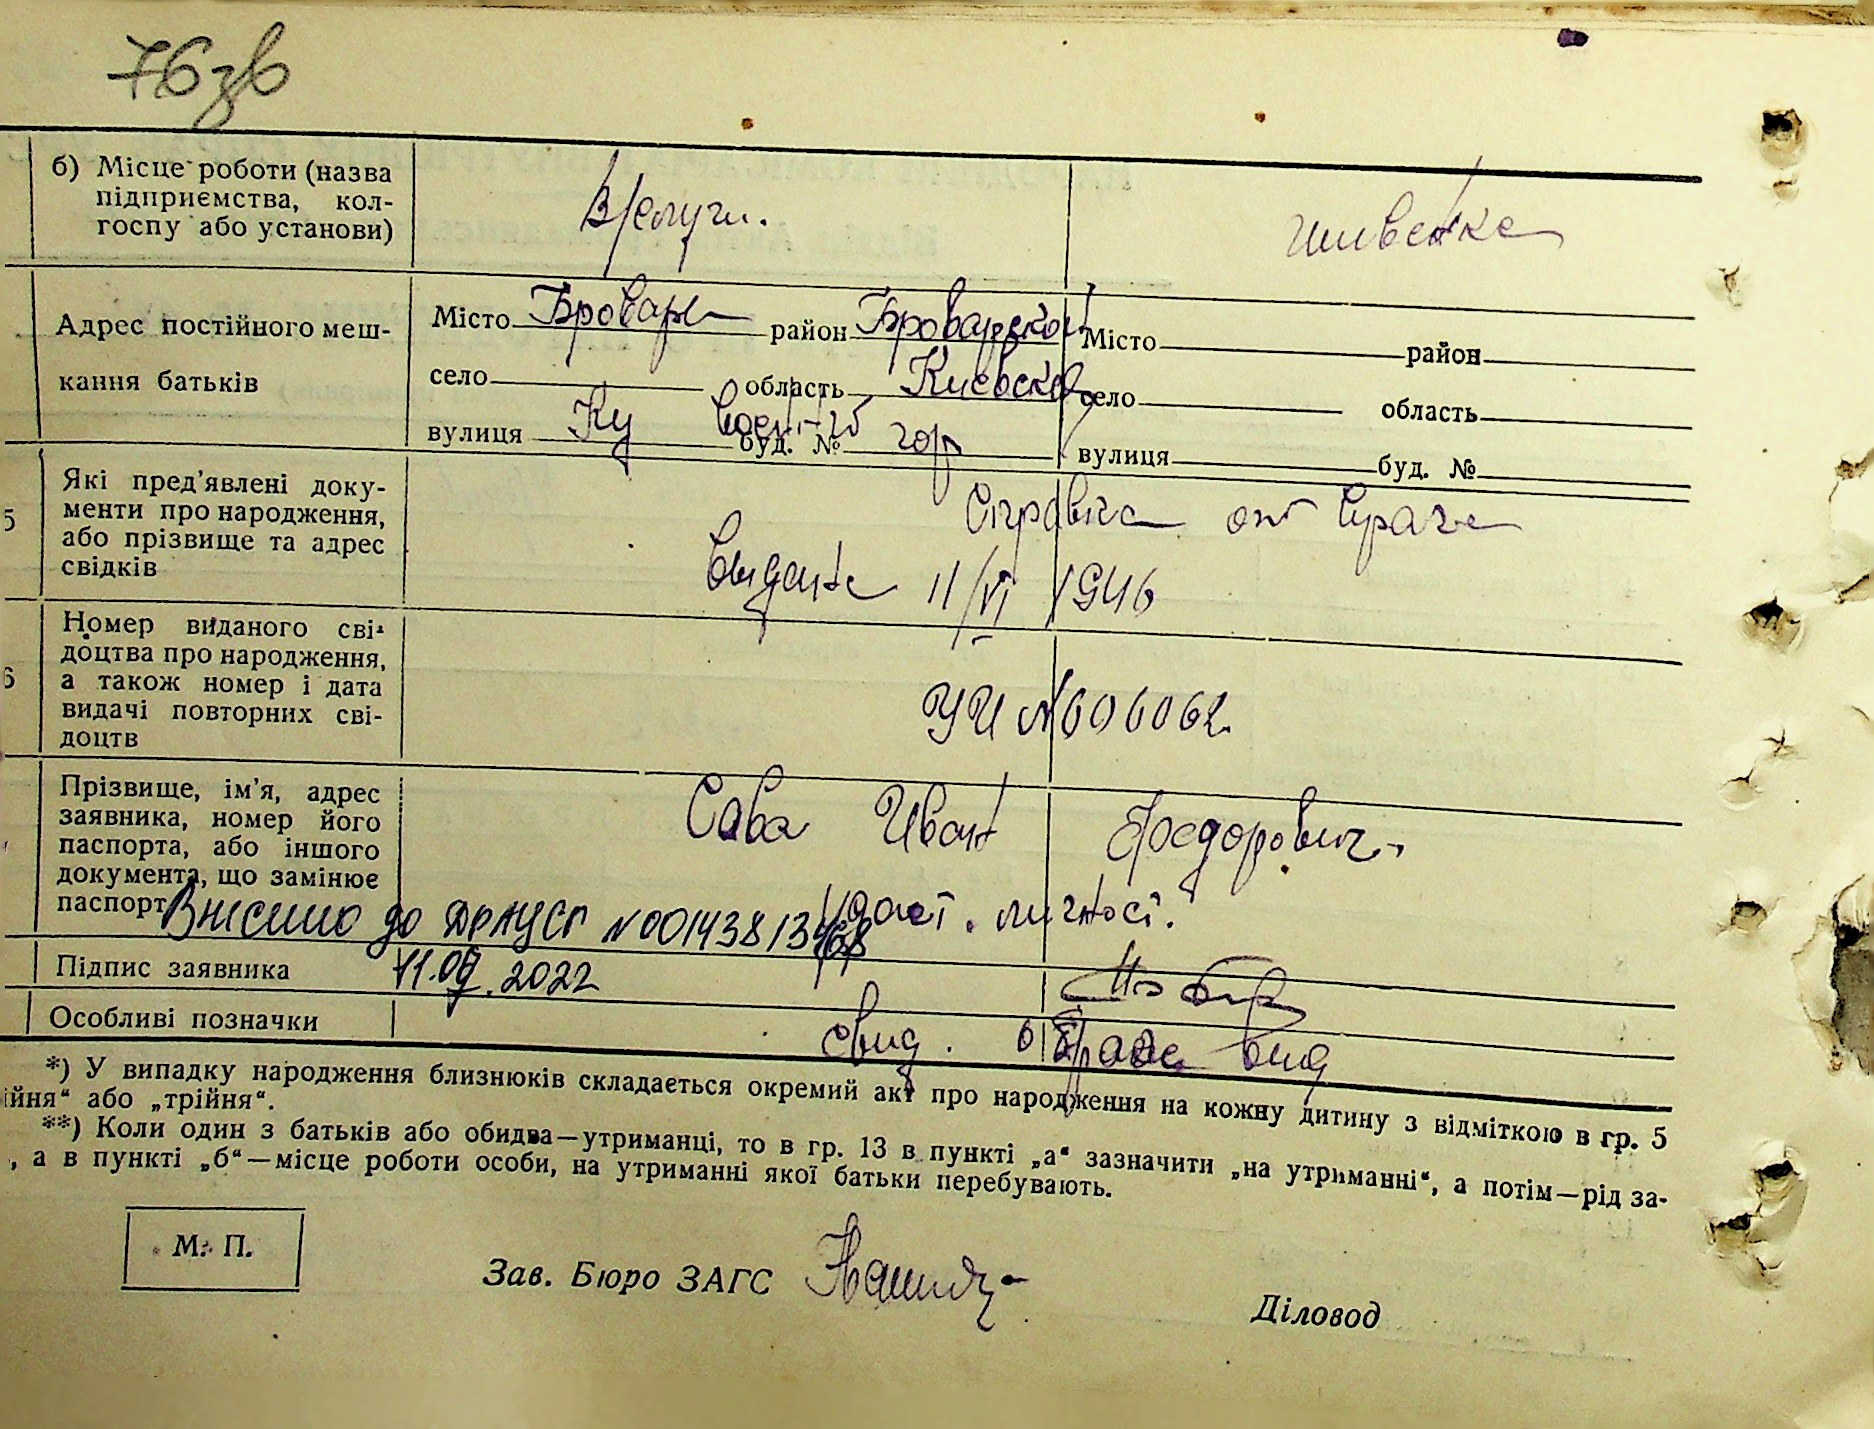 76зв
б) Місце роботи (назва
підприємства, кол-
госпу або установи)
В/служ.
Адрес постійного меш-
кання батьків
Місто Бровари район Броварской Місто район
село область Киевска село область
вулиця буд. № гор вулиця буд. №
5 Які пред'явлені доку-
менти про народження,
або прізвище та адрес
свідків
Справка от врача
выдана 11/VI 1946
6 Номер виданого сві-
доцтва про народження,
а також номер і дата
видачі повторних сві-
доцтв
УИ №606062
Прізвище, ім'я, адрес
заявника, номер його
паспорта, або іншого
документа, що замінює
паспорт
Сава Иван Феодорович
удост. личност.
Внесено до ДРАЦСГ №00143813468
Підпис заявника 11.07.2022
Особливі позначки свид. о браке вид
*) У випадку народження близнюків складається окремий акт про народження на кожну дитину з відміткою в гр. 5
ійня“ або „трійня“.
**) Коли один з батьків або обидва—утриманці, то в гр. 13 в пункті „а“ зазначити „на утриманні“, а потім—рід за-
, а в пункті „б“—місце роботи особи, на утриманні якої батьки перебувають.
М. П.
Зав. Бюро ЗАГС
Діловод